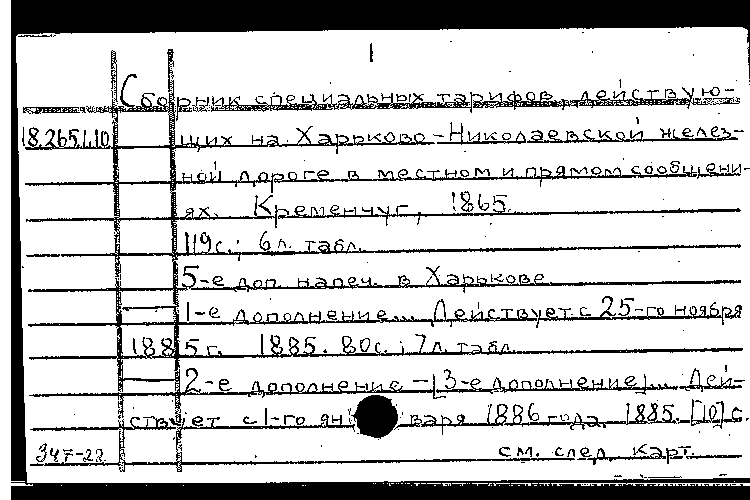 1
Сборник специальных тарифов, действую-
18.265.1.10 щих на Харьково-Николаевской желез-
ной дороге в местном и прямом сообщени-
ях. Кременчуг, 1865.
119с.; 6л. табл.
5-е доп. напеч. в Харькове
— 1-е дополнение... Действует с 25-го ноября
1885г. 1885. 80с.; 7л. табл.
— 2-е дополнение - [3-е дополнение]... Дей-
ствует с 1-го января 1886 года. 1885. [10] с.
347-22 см. след. карт.